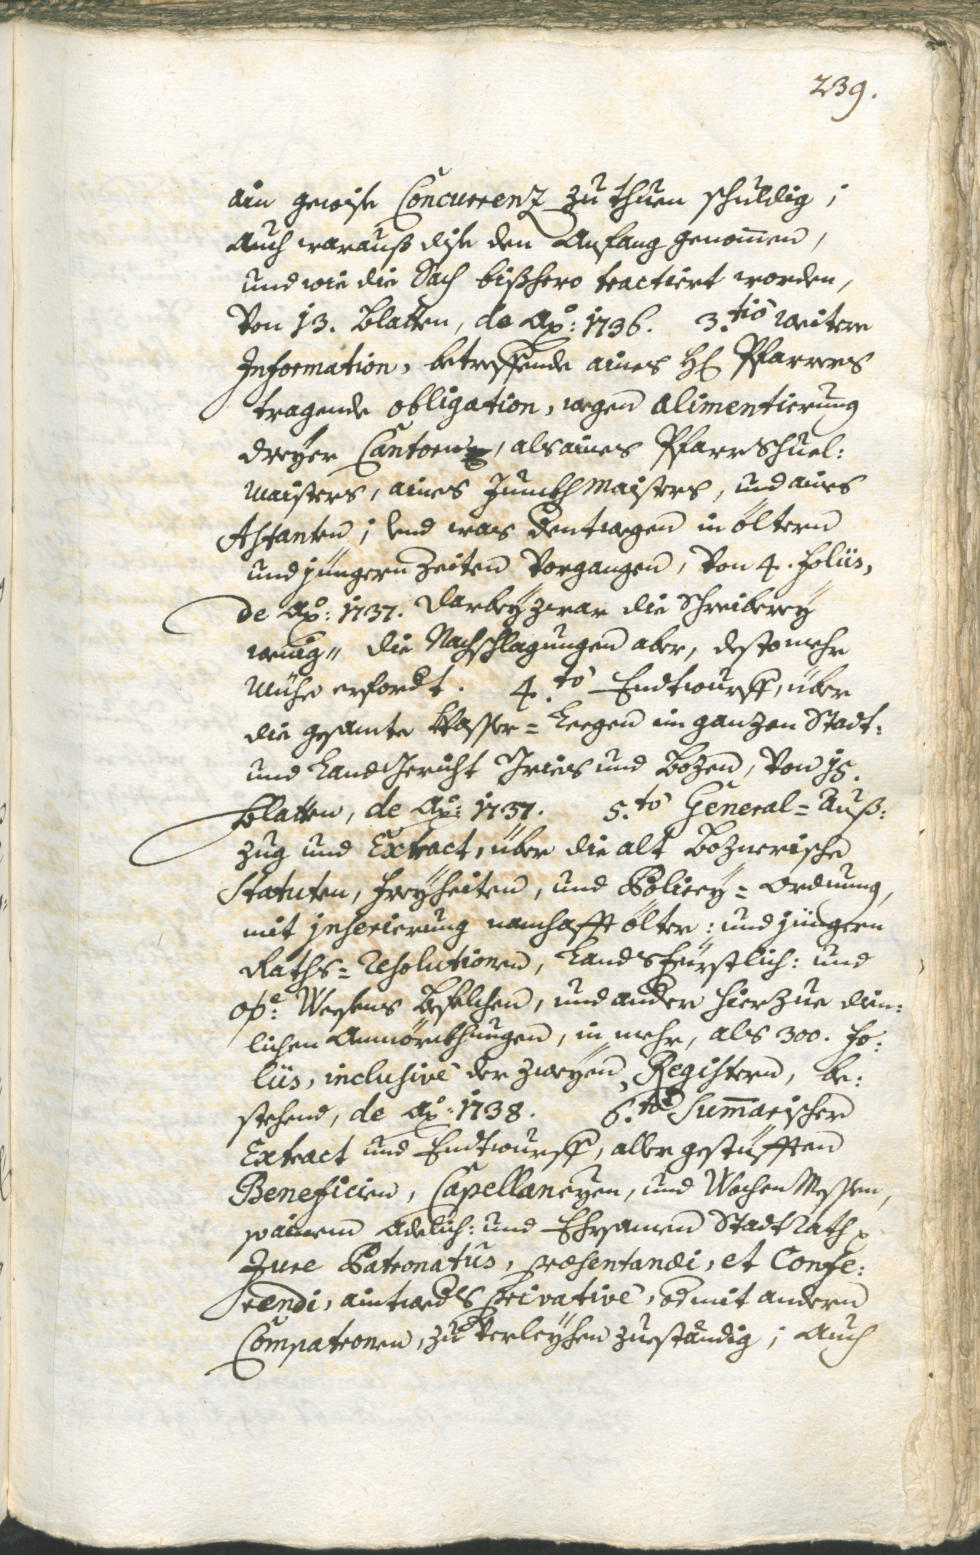 239.
ain gewise Concurrenz zu thuen schuldig;
Auch warauß dise den Anfang genommen,
und wie die Sach bißhero tractiert worden,
Von 13. Blatten, de Aō: 1736. 3.tiō weitere
Information, betreffende aines H: Pfarrers
tragende obligation, wegen alimentierung
dreyer Cantorn, als aines Pfarr Schuel:
maisters, aines Junckhmaisters, und aines
Astanten; und was dentwegen in öltern
und jüngern Zeiten Vorgangen, Von 4. Foliis,
de Aō: 1737. darbey zwar die Schreiberey
wenig" die Nachschlagungen aber, desto mehr
Mühe erfordt. 4.tō Endtwurff, über
die gesamte Wasser= Leegen im ganzen Stadt:
und Land Gericht Gries und Bozen, Von 15.
Blatten, de Aō: 1737. 5.tō General= Auß:
zug und Extract, über die alt Boznerische
Statuten, Freyheiten, und Policey= Ordnung,
mit inserierung namhafft ölter: und jüngern
Raths= Resolutionen, Landsfürstlich: und
o: Weesens Befelchen, und andere hierzue dien:
lichen Anmörckhungen, in mehr, als 300. Fo:
liis, inclusivè der zweyen Registern, be:
stehend, de Aō: 1738. 6.tō Summarischer
Extract und Endtwurff, aller gestüfften
Beneficien, Capellaneyen, und Wochen Messen,
so ainem Adelich: und Ehrsamen Stadt Rath
Jure Patronatus, præsentandi, et Confe:
rendi, aintweders privativè, od mit andern
Compatronen, zu Verleyhen zueständig; Auch